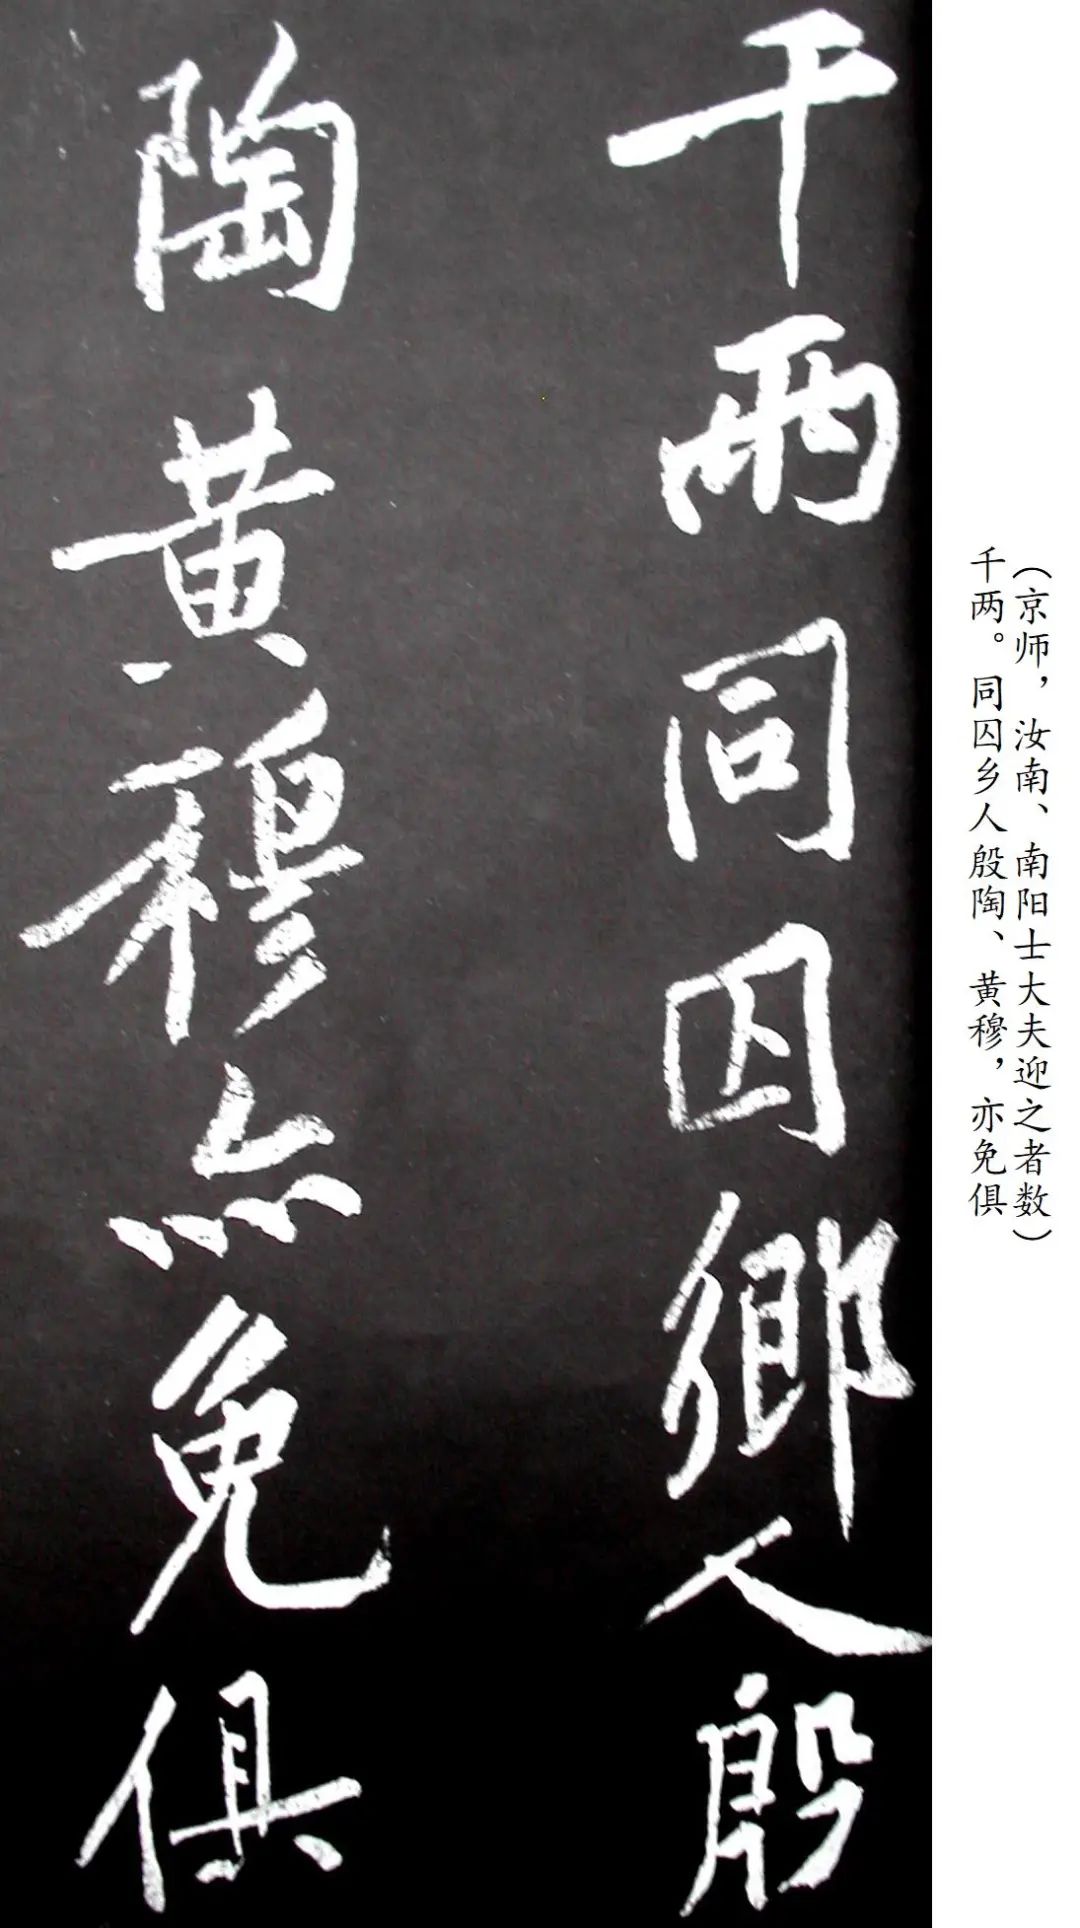 （京师，汝南、南阳士大夫迎之者数）
千两。同囚乡人殷陶、黄穆，亦免俱
千兩同囚鄉人殷
陶黄穆亦免俱